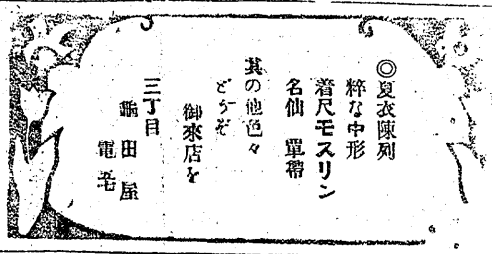 ◎夏衣陳列
粋な中形
着尺モスリン
名仙 單帶
其の他色々
どうぞ
御來店を
三丁目
田屋
電